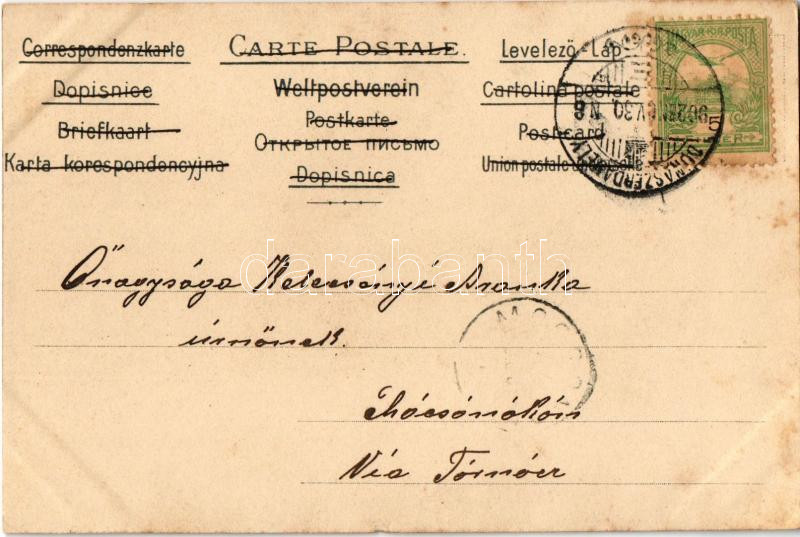 Correspondenzkarte
CARTE POSTALE.
Levelező-Lap
Dopisnice
Weltpostverein
Cartolina postale
Briefkaart
Postkarte
Postcard
Karta korespondencyjna
Открытое письмо
Union postale
Dopisnica
MAGYAR KIR. POSTA
DUNASZERDAHELY
902 NOV. 30. N 6
darabanth
Őnagysága Kelecsényi Aranka
úrnőnek.
Mócsónokón
Via Tornócz